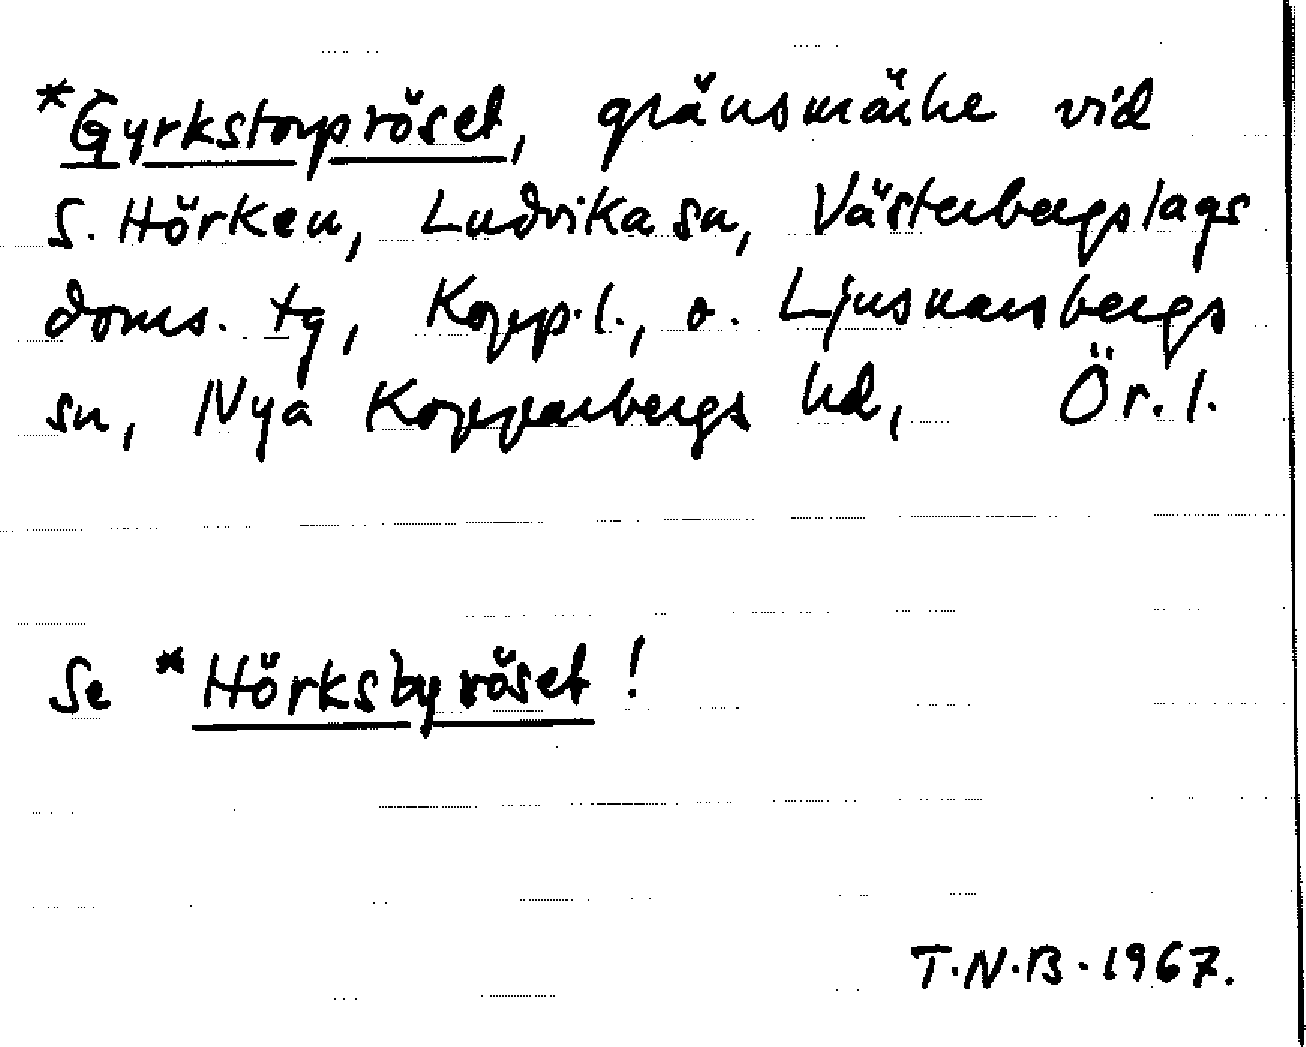 *Gyrkstorpröset, gränsmärke vid
S. Hörken, Ludvika sn, Västerbergslags
doms. tg, Kopp.l., o. Ljusnarsbergs
sn, Nya Kopparbergs hd, Ör.l.
Se *Hörksbyröset!
T.N.B. 1967.